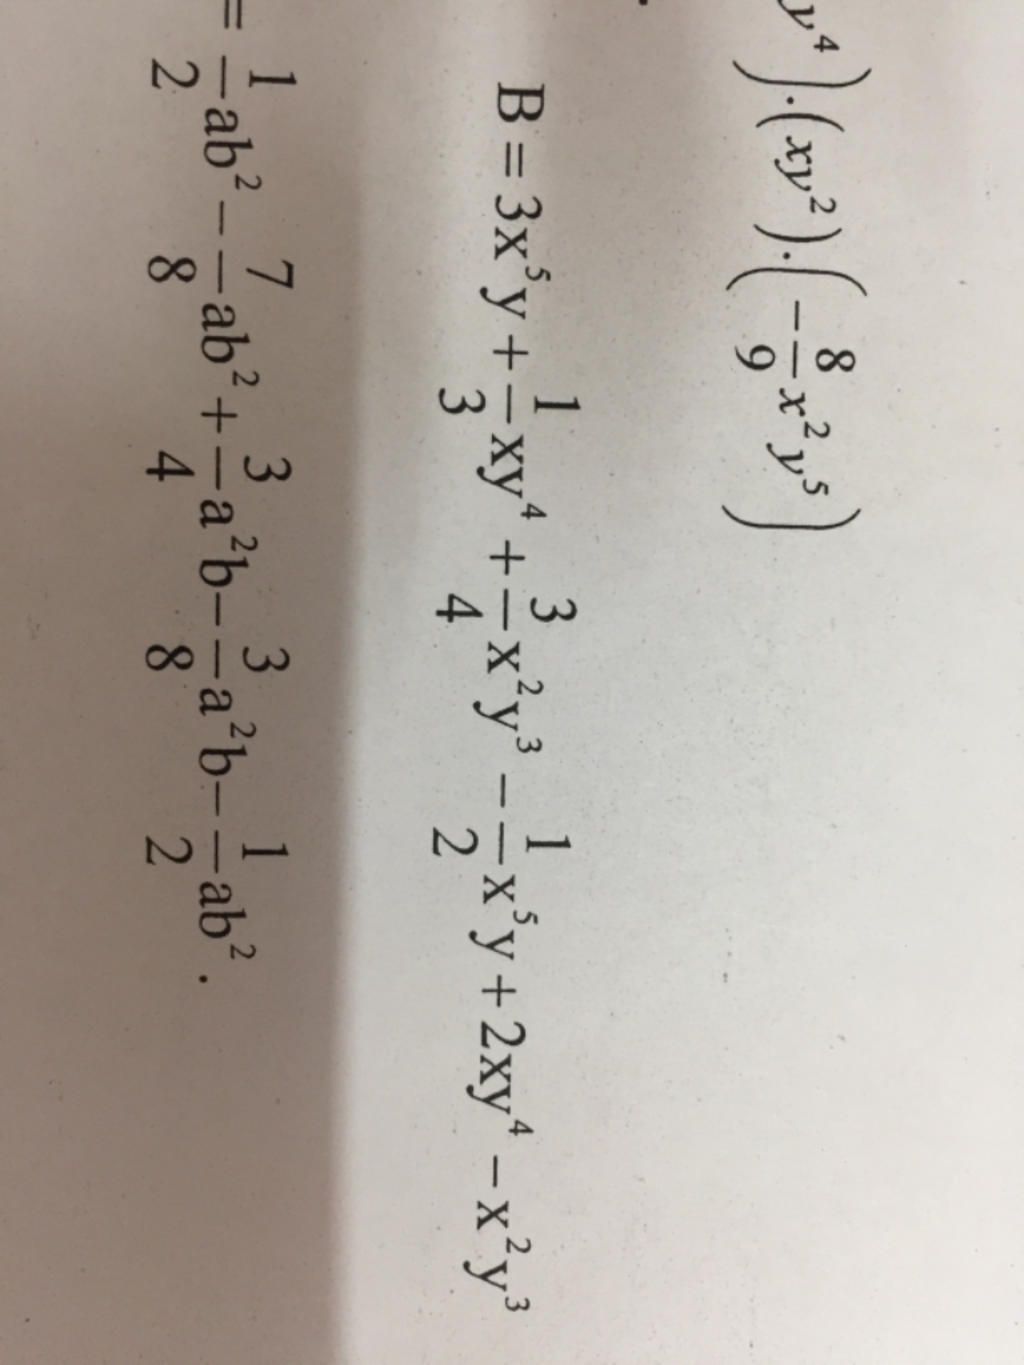 y⁴).(xy²).(-8/9 x²y⁵)
B = 3x⁵y + 1/3 xy⁴ + 3/4 x²y³ - 1/2 x⁵y + 2xy⁴ - x²y³
= 1/2 ab² - 7/8 ab² + 3/4 a²b - 3/8 a²b - 1/2 ab².